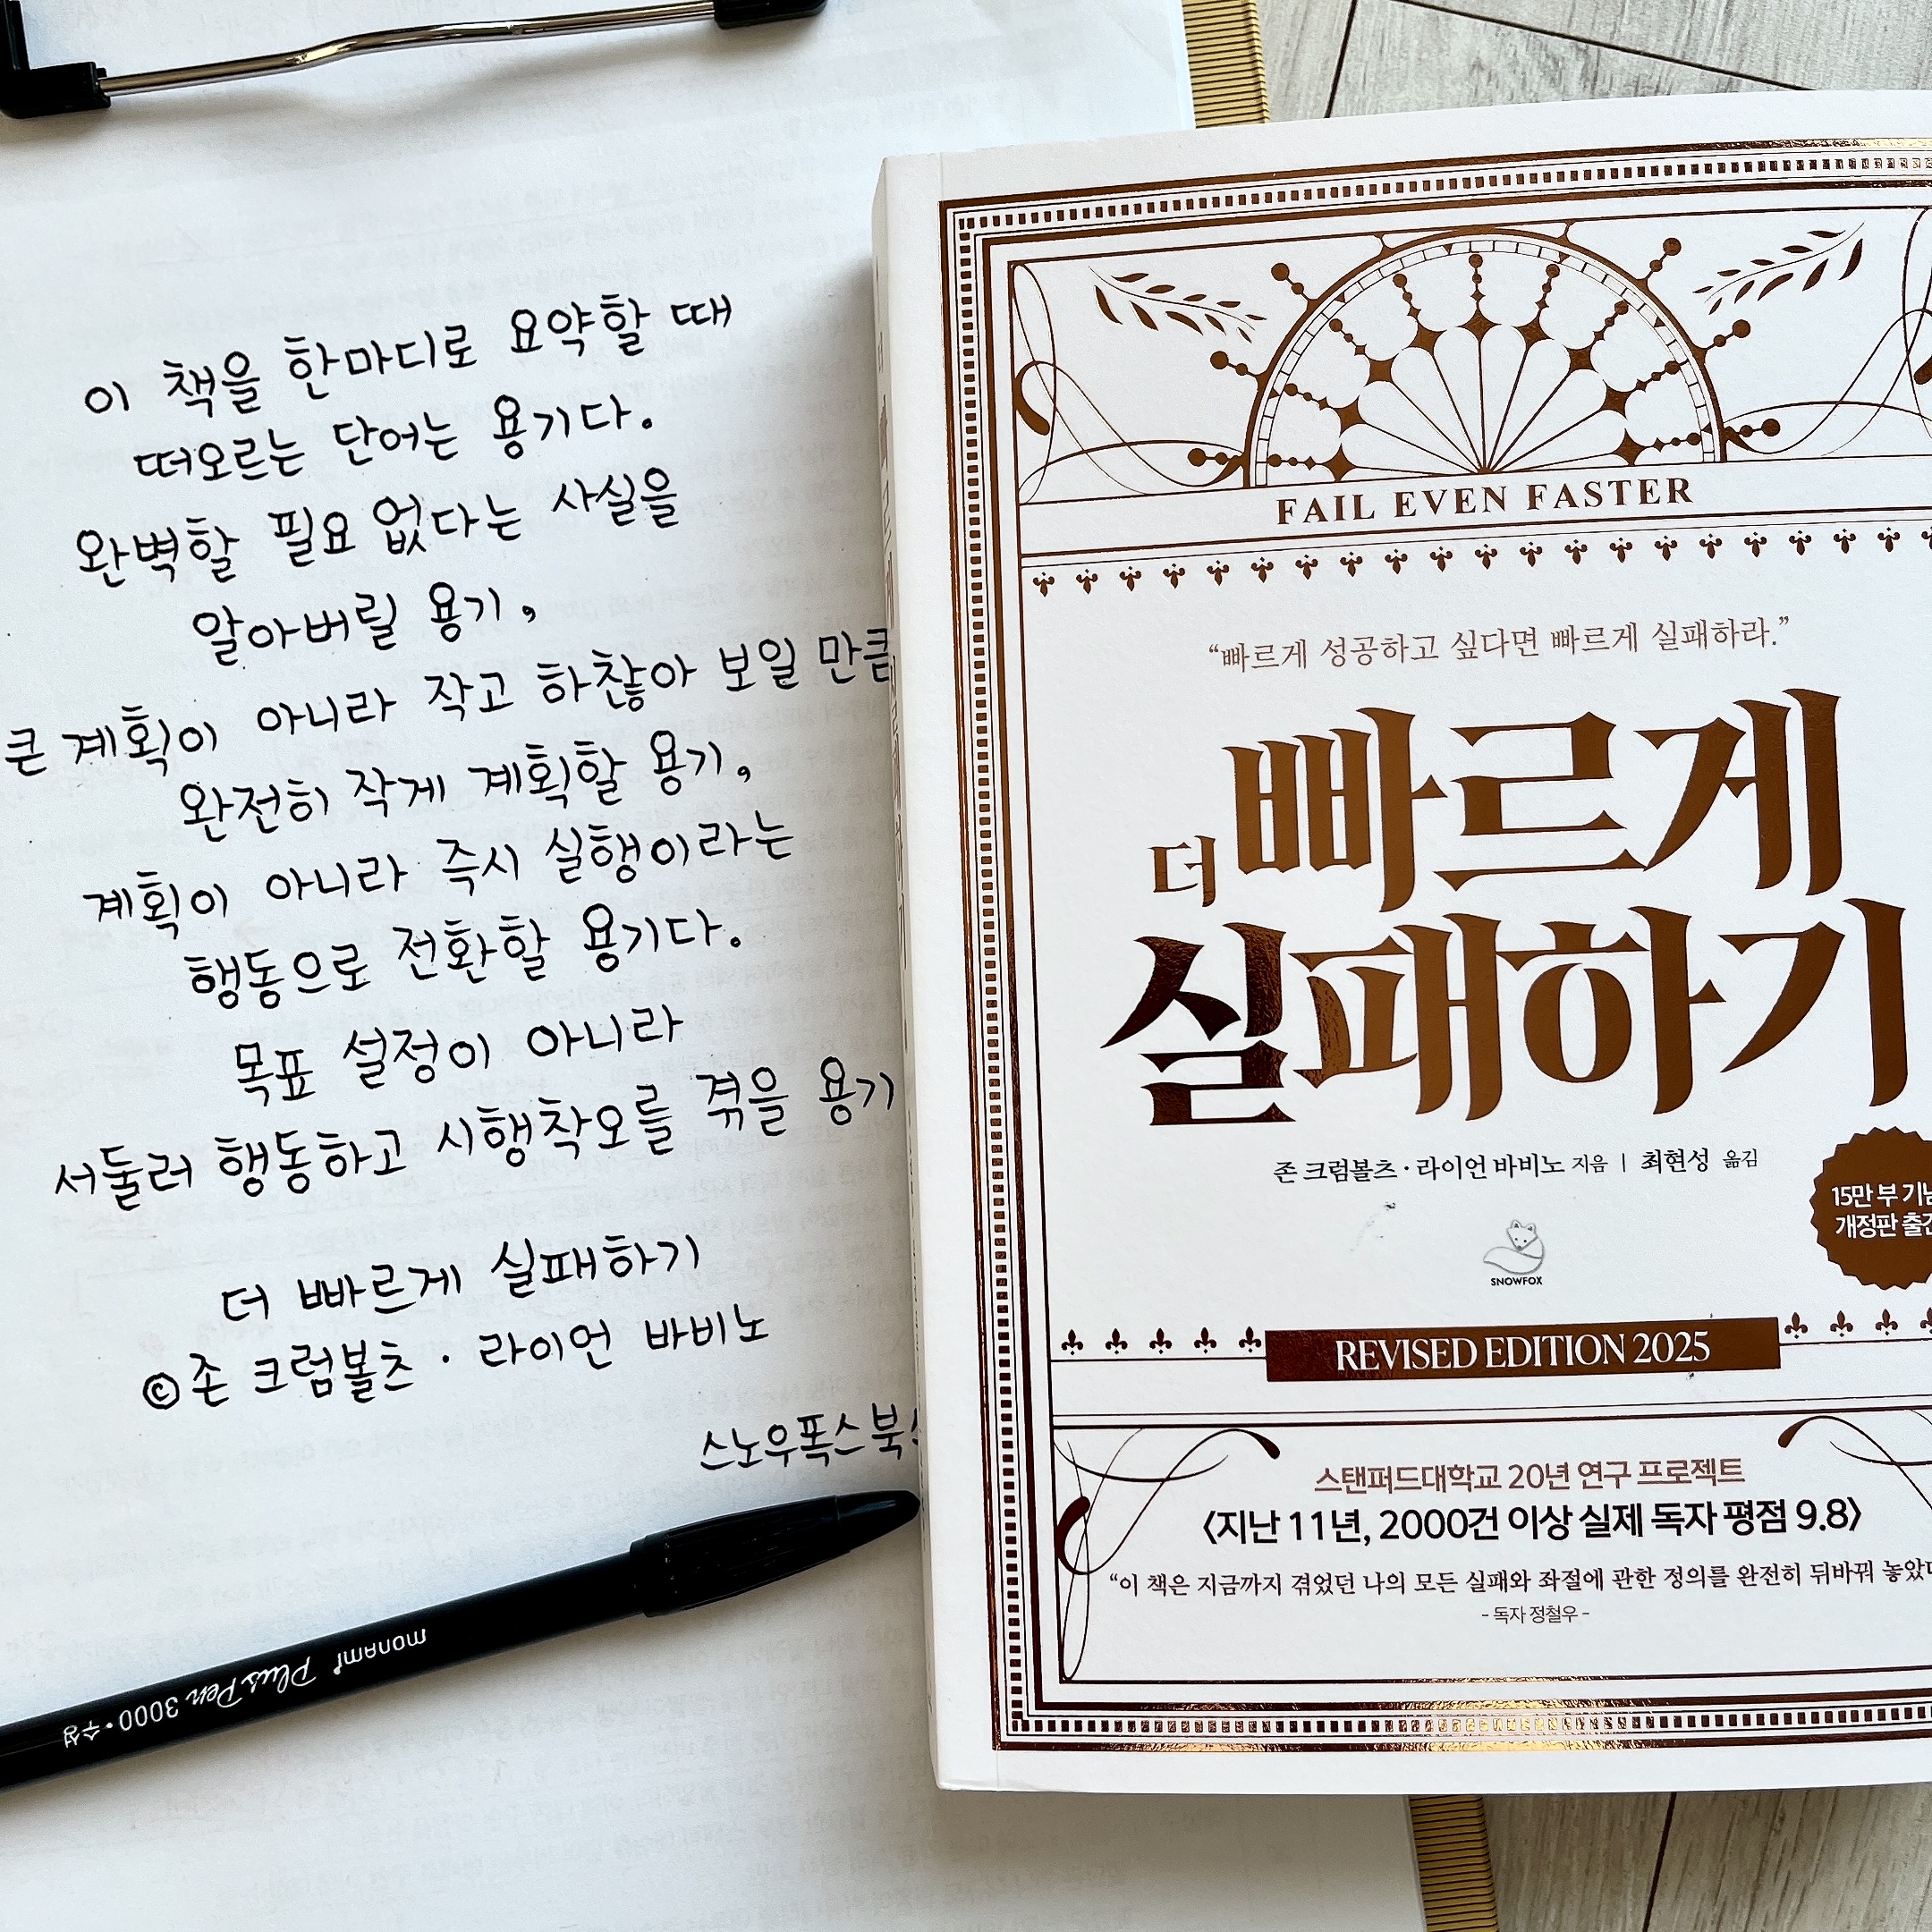 이 책을 한마디로 요약할 때
떠오르는 단어는 용기다.
완벽할 필요 없다는 사실을
알아버릴 용기,
큰 계획이 아니라 작고 하찮아 보일 만큼
완전히 작게 계획할 용기,
계획이 아니라 즉시 실행이라는
행동으로 전환할 용기다.
목표 설정이 아니라
서둘러 행동하고 시행착오를 겪을 용기
더 빠르게 실패하기
©존 크럼볼츠 · 라이언 바비노
스노우폭스북
monami Plus Pen 3000 • 수성
FAIL EVEN FASTER
“빠르게 성공하고 싶다면 빠르게 실패하라.”
더 빠르게
실패하기
존 크럼볼츠 · 라이언 바비노 지음 | 최현성 옮김
15만 부 기념
개정판 출간
SNOWFOX
REVISED EDITION 2025
스탠퍼드대학교 20년 연구 프로젝트
〈지난 11년, 2000건 이상 실제 독자 평점 9.8〉
“이 책은 지금까지 겪었던 나의 모든 실패와 좌절에 관한 정의를 완전히 뒤바꿔 놓았
- 독자 정철우 -